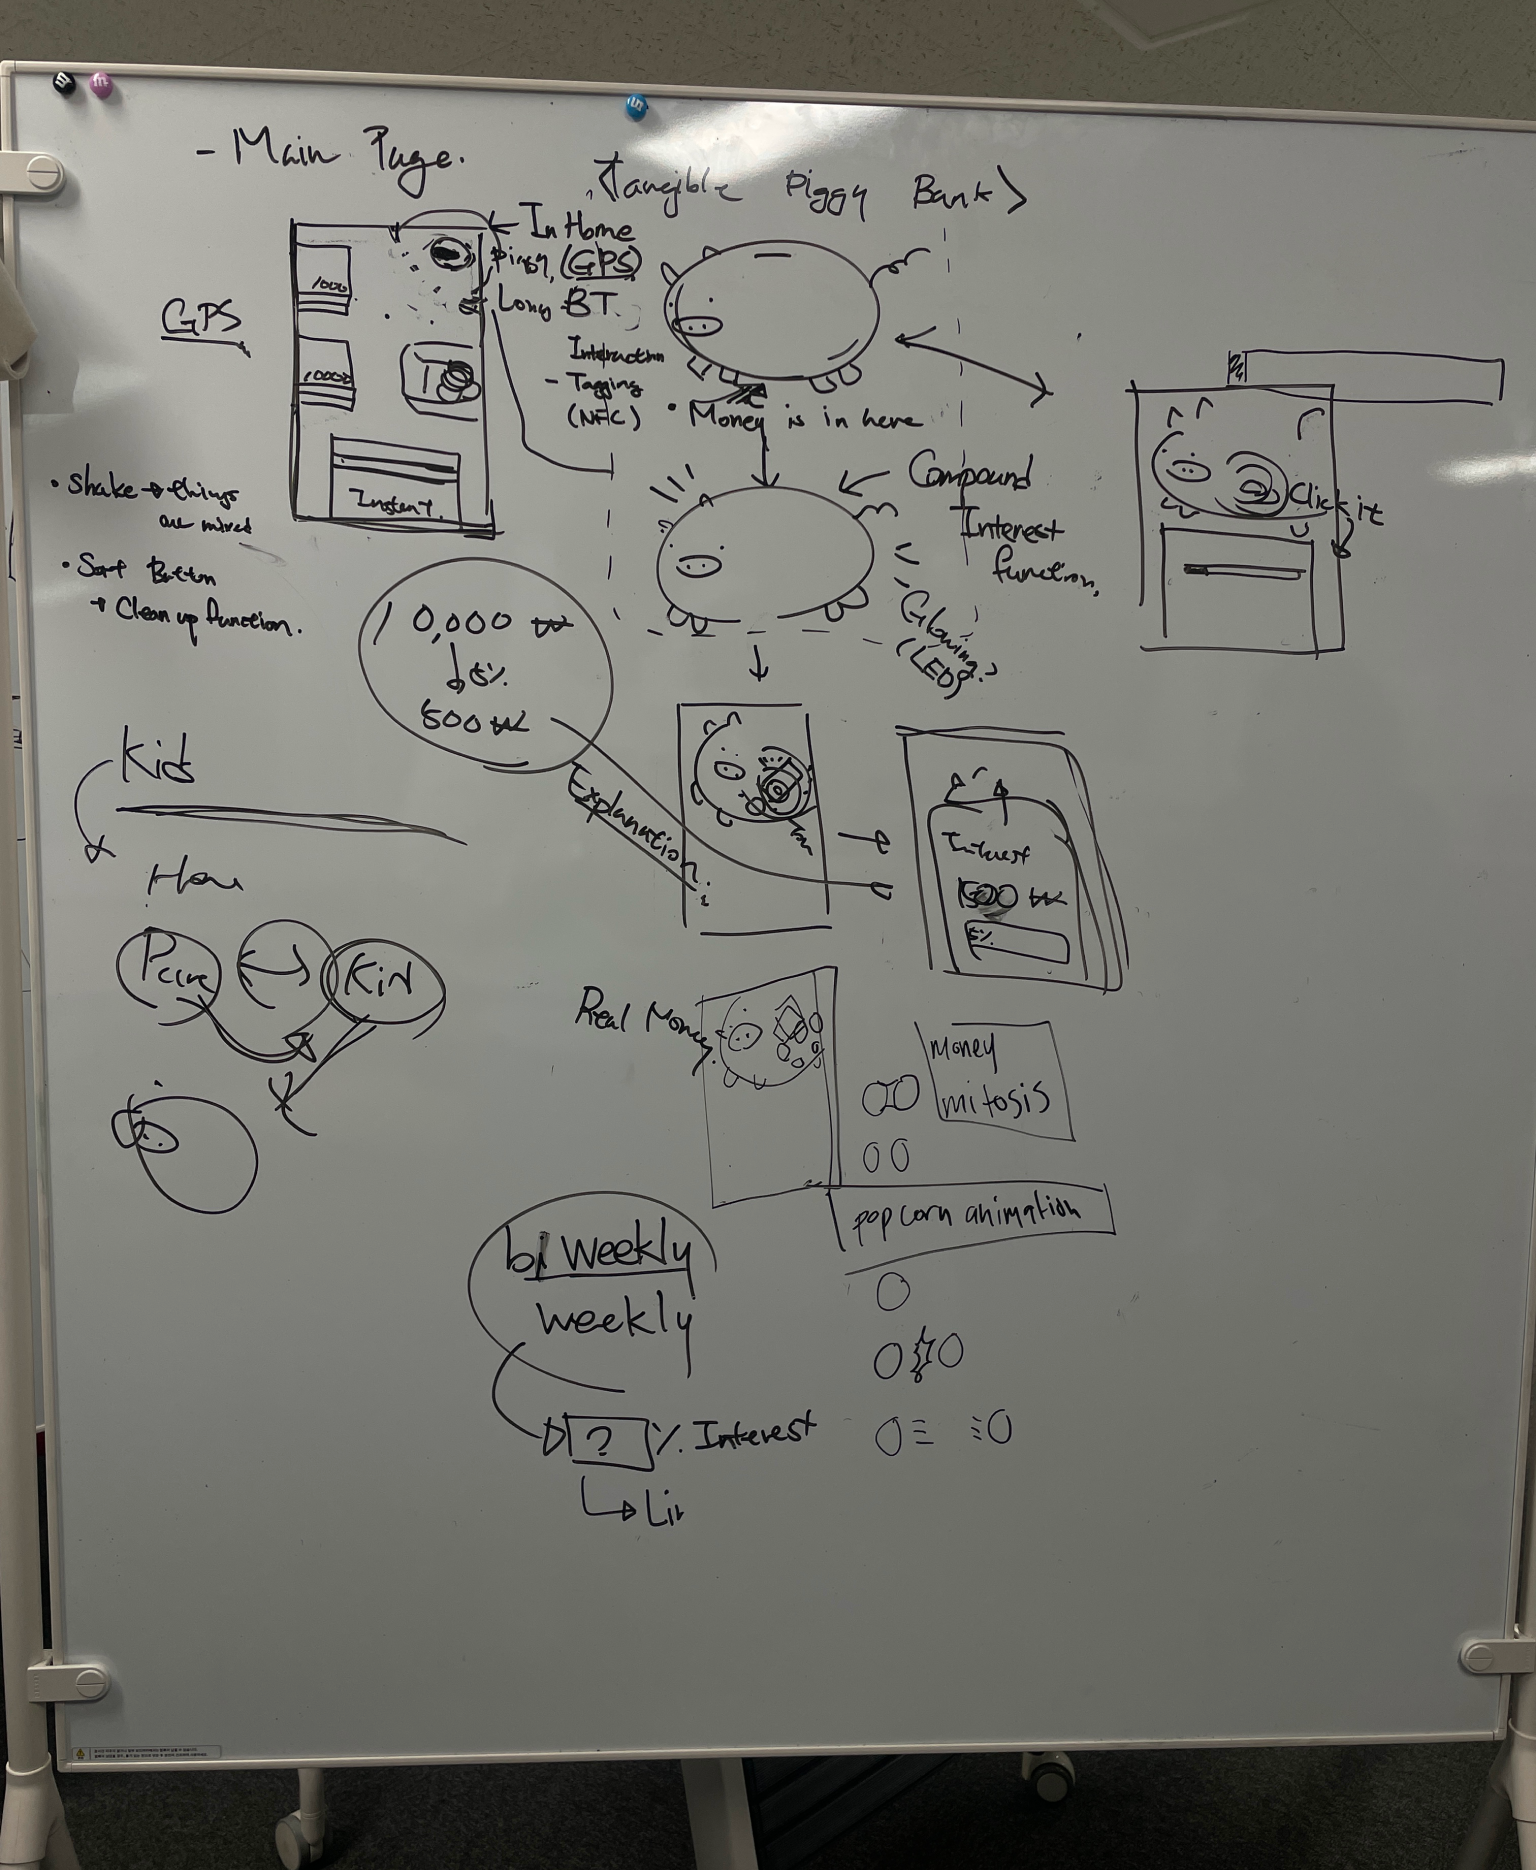 - Main Page.
<Tangible Piggy Bank>
In Home
Piggy, (GPS)
Long BT.
GPS
1000
10000
Interaction
- Tagging
(NFC)
• Money is in here
• Shake → things
are mixed
• Sort Button
→ Clean up function.
Compound
Interest
function.
Click it
Glowing?
(LED)
10,000 ₩
↓ 5%
500 ₩
Explanation
Kids
Interest
500 ₩
5%
Real Money.
money
mitosis
popcorn animation
bi weekly
weekly
? % Interest